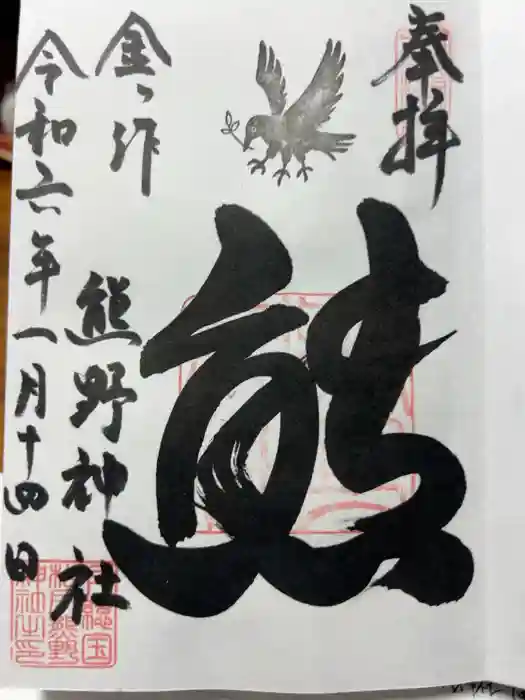 奉拝
熊
金ヶ作
熊野神社
令和六年一月十四日